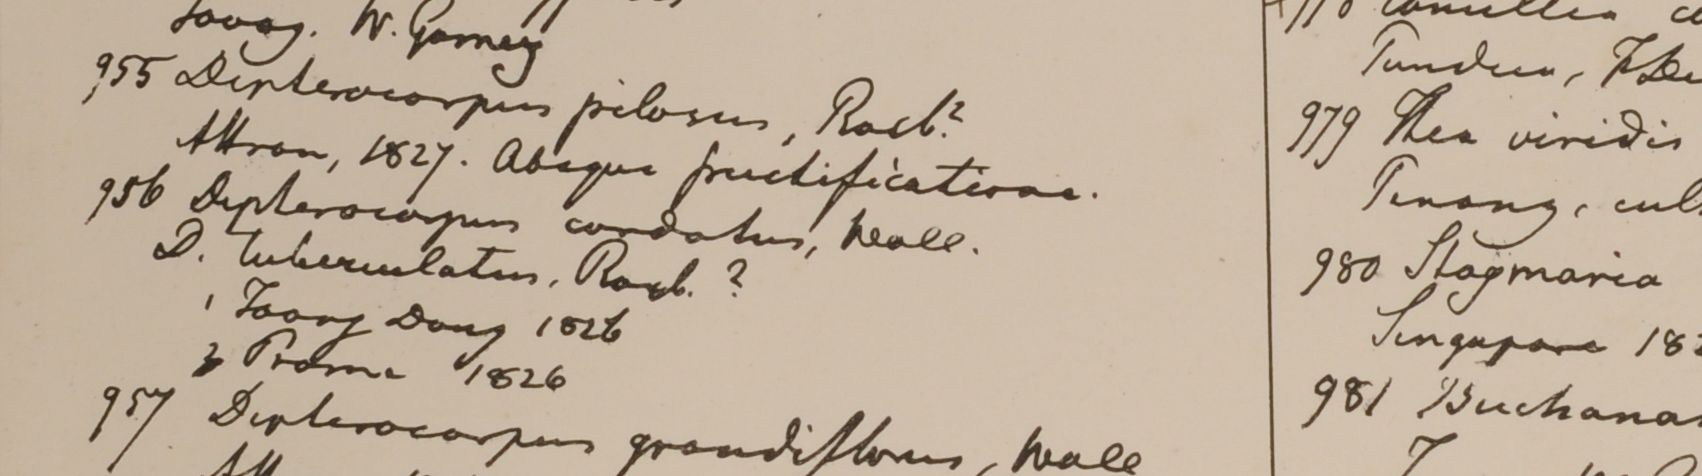 Tavoy. W. Gomez
955 Dipterocarpus pilosus, Roxb.?
Attran, 1827. Absque fructificatione.
956 Dipterocarpus cordatus, Wall.
D. tuberculatus, Roxb. ?
1 Taong Dong 1826
2 Prome 1826
957 Dipterocarpus grandiflorus, Wall
978 Camellia
979 Thea viridis
Penang, cul
980 Stagmaria
Singapore 182
981 Buchanan